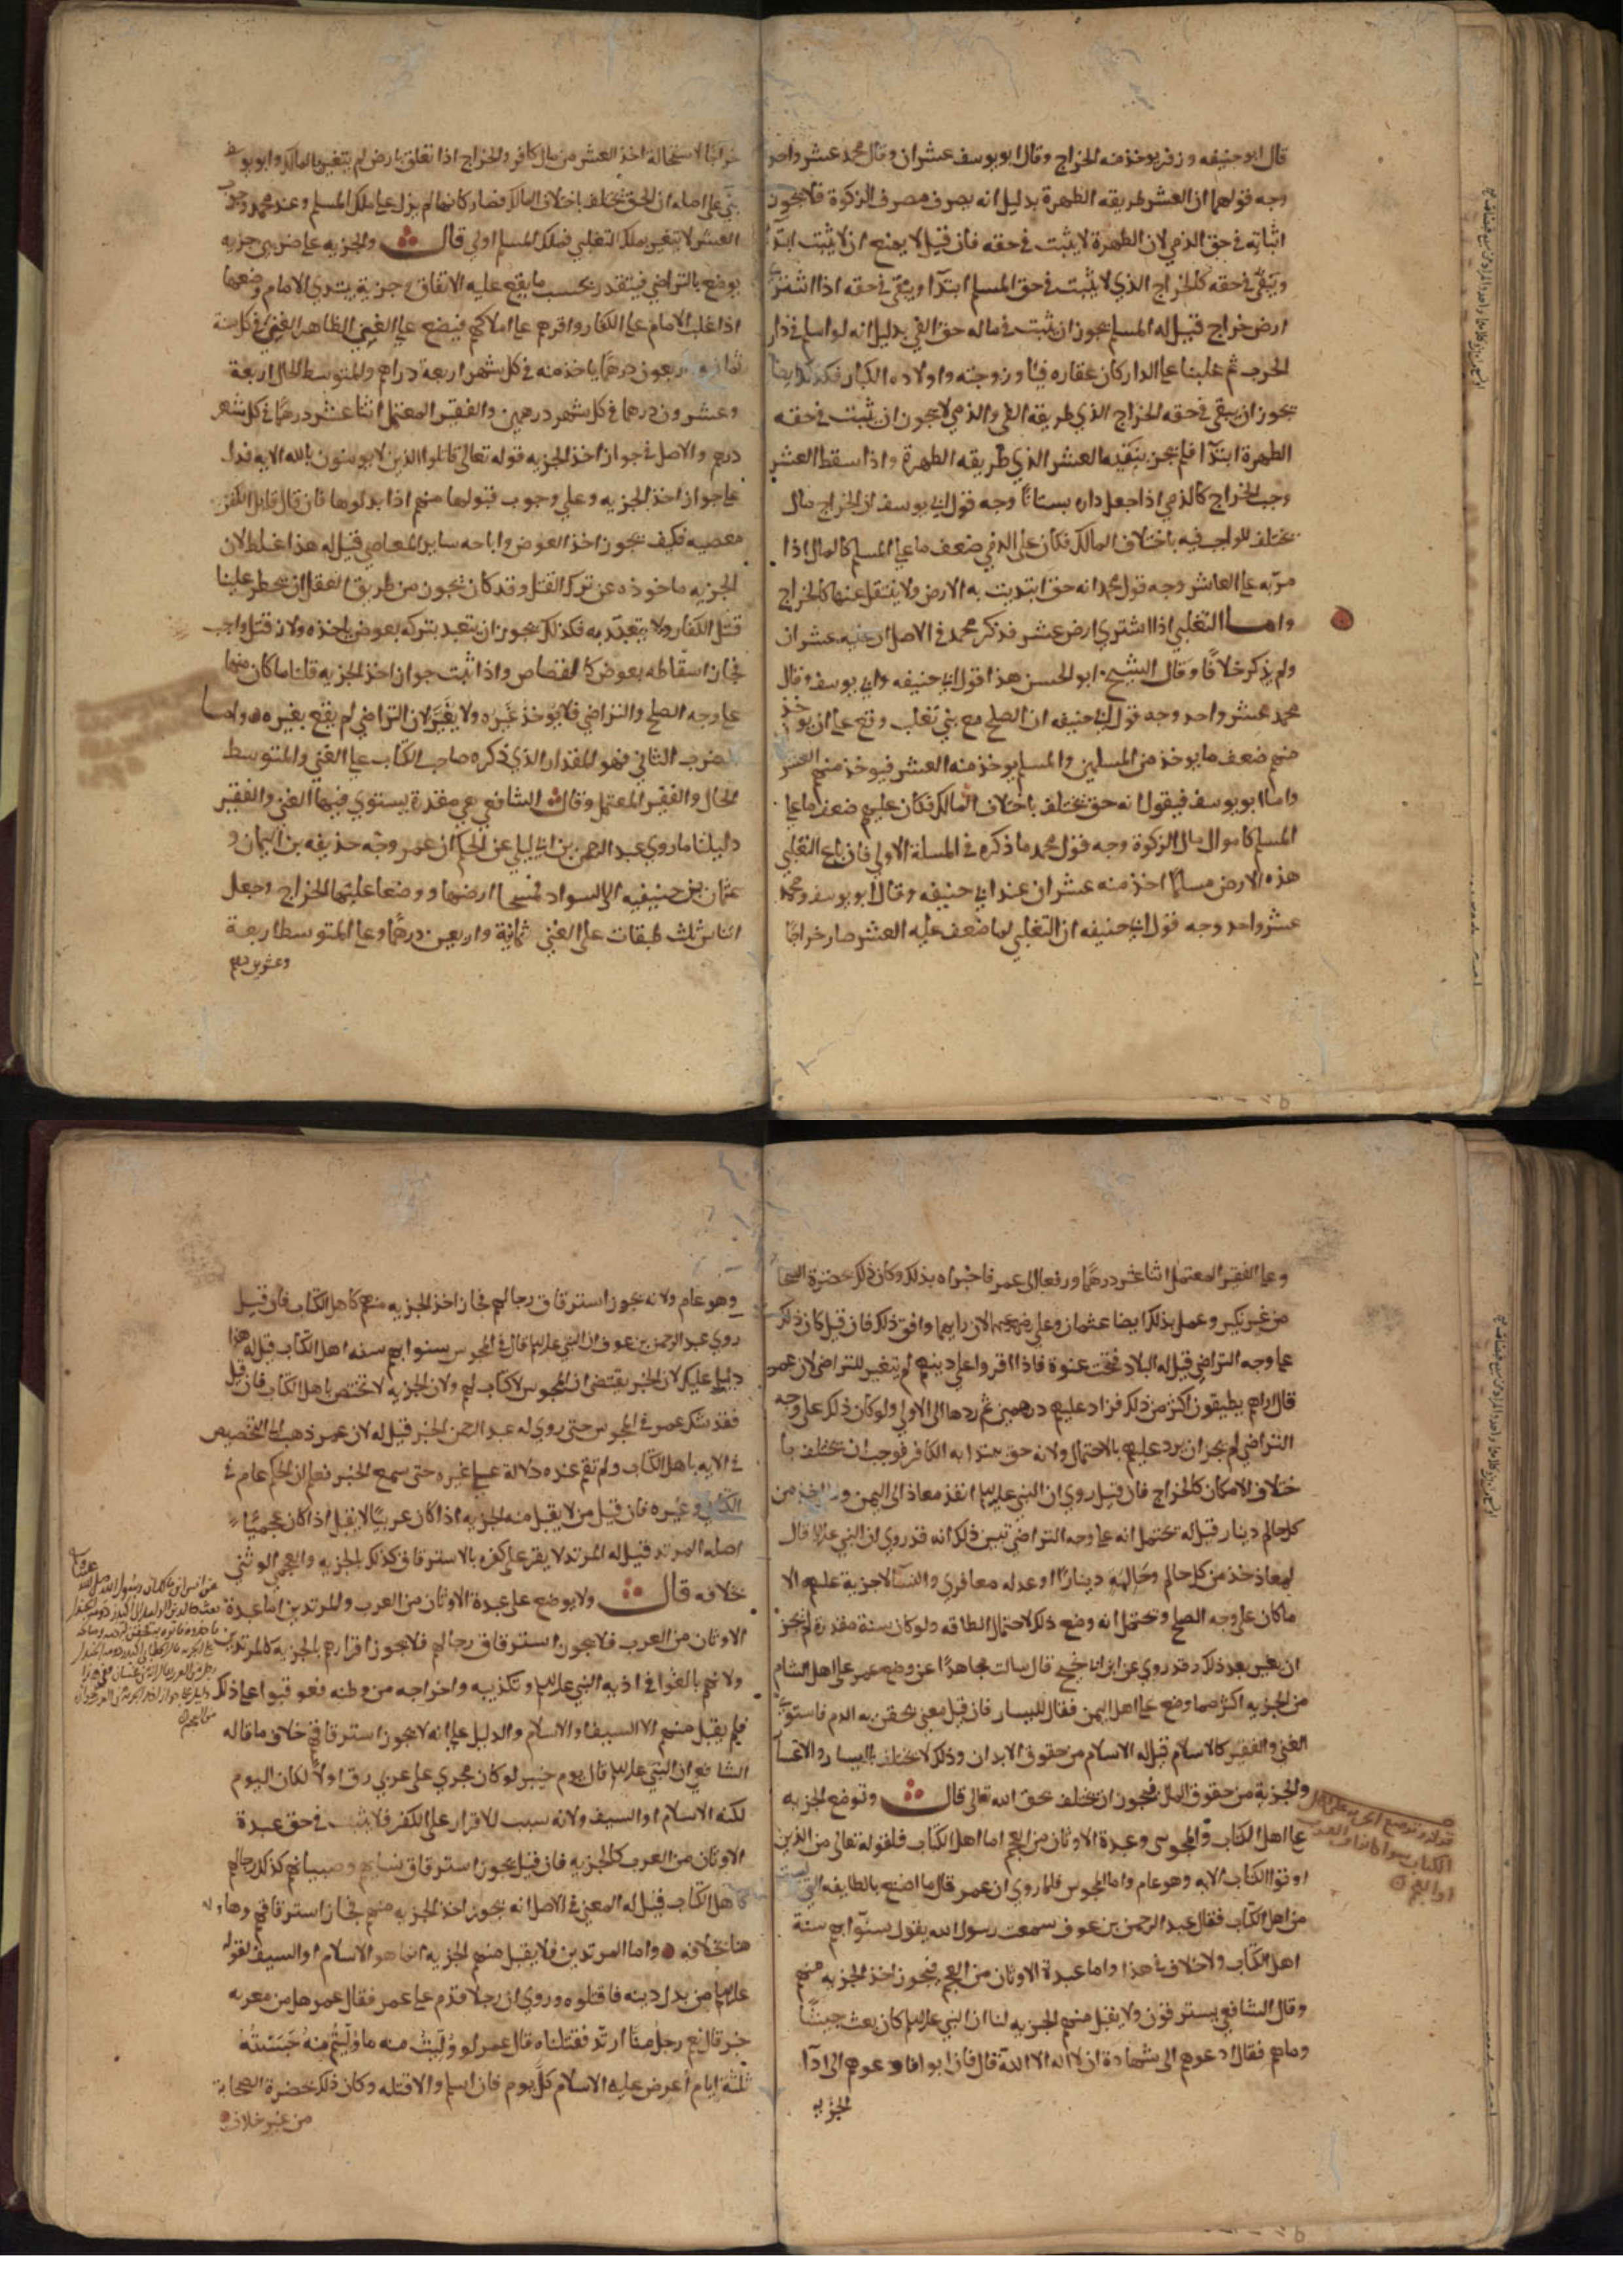 قال ابو حنيفه وزفر يوخذ منه الخراج وقال ابو يوسف عشران وقال محمد عشر واحد
وجه قولهما ان العشر طريقه الطهرة بدليل انه يصرف مصرف الزكوة فلا يجوز
اثباته في حق الذمي لان الطهرة لا يثبت في حقه فان قيل لا يمنع ان لا يثبت ابتدا
ويبقى في حقه كالخراج الذي لا يثبت في حق المسلم ابتدآ ويبقى في حقه اذا اشترى
ارض خراج قيل له المسلم يجوز ان يثبت في ماله حق الفي بدليل انه لو اسلم في دار
الحرب ثم غلبنا على الدار كان عقاره فيًا وزوجته واولاده الكبار فكذلك ايضا
يجوز ان يبقى في حقه الخراج الذي طريقه الفي والذمي لا يجوز ان يثبت في حقه
الطهرة ابتدآ فلم يجز تبقيه العشر الذي طريقه الطهرة واذا سقط العشر
وجب الخراج كالذمي اذا جعل داره بستانًا وجه قول ابي يوسف ان الخراج مال
يختلف الواجب فيه باختلاف المالك فكان على الذمي ضعف ما على المسلم كالمال اذا
مر به على العاشر وجه قول محمد انه حق ابتديت به الارض ولا ينتقل عنها كالخراج
واما التغلبي اذا اشترى ارض عشر فذكر محمد في الاصل ان عليه عشران
ولم يذكر خلافًا وقال الشيخ ابو الحسن هذا قول ابي حنيفه وابي يوسف وقال
محمد عشر واحد وجه قول ابي حنيفه ان الصلح مع بني تغلب وقع على ان يوخذ
منهم ضعف ما يوخذ من المسلمين والمسلم يوخذ منه العشر فيوخذ منهم العشر
واما ابو يوسف فيقول انه حق يختلف باختلاف المالك فكان عليهم ضعف ما على
المسلم كاموال الزكوة وجه قول محمد ما ذكره في المسلة الاولى فان باع التغلبي
هذه الارض مسلمًا اخذ منه عشران عند ابي حنيفه وقال ابو يوسف ومحمد
عشر واحد وجه قول ابي حنيفه ان التغلبي لما ضعف عليه العشر صار خراجًا
خراجًا لاستحالة اخذ العشر من مال كافر والخراج اذا تعلق بارض لم يتغير بالمالك وابو يوسف
بنى على اصله ان الحق يختلف باختلاف المالك فصار كانها لم يزل على ملك المسلم وعند محمد وجوب
العشر لا يتغير بملك التغلبي فملك المسلم اولى قال والجزيه على ضربين جزيه
يوضع بالتراضي فيتقدر بحسب ما يقع عليه الاتفاق وجزية يبتدي الامام وضعها
اذا غلب الامام على الكفار واقرهم على املاكهم فيضع على الغني الظاهر الغنى في كل سنة
ثمانيه واربعون درهمًا ياخذ منه في كل شهر اربعة دراهم والمتوسط الحال اربعة
وعشرون درهما في كل شهر درهمين والفقير المعتمل اثنا عشر درهمًا في كل شهر
درهم والاصل في جواز اخذ الجزيه قوله تعالى قاتلوا الذين لا يومنون بالله الايه فدل
على جواز اخذ الجزيه وعلى وجوب قبولها منهم اذا بذلوها فان قال قايل الكفر
معصيه فكيف يجوز اخذ العوض واباحه ساير المعاصي قيل له هذا غلط لان
الجزيه ماخوذه عن ترك القتل وقد كان يجوز من طريق العقل ان يحظر علينا
قتل الكفار ولا يتعبد به فكذلك يجوز ان يتعبد بتركه بعوض ياخذه ولان قتل واجب
فجاز اسقاطه بعوض كالقصاص واذا ثبت جواز اخذ الجزيه قلنا ما كان منها
على وجه الصلح والتراضي فلا يوخذ غيره ولا يغير لان التراضي لم يقع بغيره واما
الضرب الثاني فهو المقدار الذي ذكره صاحب الكتاب على الغني والمتوسط
الحال والفقير المعتمل وقال الشافعي هي مقدرة يستوي فيها الغني والفقير
دليلنا ما روي عبد الرحمن بن ابي ليلى عن الحكم ان عمر وجه حذيفه بن اليمان و
عثمان بن حنيفيه الى السواد فمسحا ارضها ووضعا عليها الخراج وجعل
الناس ثلث طبقات على الغني ثمانية واربعين درهمًا وعلى المتوسط اربعة
وعشرين درهم
وعلى الفقير المعتمل اثنا عشر درهمًا ورفعا الى عمر فاخبراه بذلك وكان ذلك بحضرة الصحا
من غير نكير وعمل بذلك ايضا عثمان وعلي فان قيل كان ذلك
على وجه التراضي قيل له البلاد فتحت عنوة فاذا اقروا على دينهم لم يتغير للتراضي لان عمر
قال اراهم يطيقون اكثر من ذلك فزاد عليهم درهمين ثم ردها الى الاولي ولو كان ذلك على وجه
التراضي لم يجز ان يرد عليهم بالاحتمال ولانه حق يبتدا به الكافر فوجب ان يختلف با
ختلاف الامكان كالخراج فان قيل روي ان النبي عليه السلم انفذ معاذ الى اليمن وقال خذ من
كل حالم دينار قيل له يحتمل انه على وجه التراضي تبين ذلك انه قد روي ان النبي عليه السلم قال
لمعاذ خذ من كل حالم وحالمه دينارًا او عدله معافري والنسآ لا جزية عليهم الا
ما كان على وجه الصلح ويحتمل انه وضع ذلك لاحتمال الطاقه ولو كان سنة مقدرة لم يجز
ان يغير بعد ذلك وقد روي عن ابن ابي نجيح قال سالت مجاهدًا عن وضع عمر على اهل الشام
من الجزيه اكثر مما وضع على اهل اليمن فقال لليسار فان قيل معنى يحقن به الدم فاستوى
الغني والفقير كالاسلام قيل له الاسلام من حقوق الابدان وذلك لا يختلف باليسار والاعسار
والجزية من حقوق المال فيجوز ان يختلف بحق الله تعالى قال وتوضع الجزيه
على اهل الكتاب والمجوس وعبدة الاوثان من العجم اما اهل الكتاب فلقوله تعالى من الذين
اوتوا الكتاب الايه وهو عام واما المجوس فلما روي ان عمر قال ما اصنع بالطايفه التي ليست
من اهل الكتاب فقال عبد الرحمن بن عوف سمعت رسول الله يقول سنوآ بهم سنة
اهل الكتاب ولا خلاف في هذا واما عبدة الاوثان من العجم فيجوز اخذ الجزيه منهم
وقال الشافعي يسترقون ولا يقبل منهم الجزيه لنا ان النبي عليه السلم كان يبعث جيشًا
وماهم فقال ادعوهم الى شهادة ان لا اله الا الله قال فان ابوا فادعوهم الى ادآ
الجزيه
قوله وتوضع الجزيه على اهل
الكتاب سوا كانوا من العرب
او العجم
وهو عام ولانه يجوز استرقاق رجالهم فجاز اخذ الجزيه منهم كاهل الكتاب فان قيل
روي عبد الرحمن بن عوف ان النبي عليه السلم قال في المجوس سنوا بهم سنه اهل الكتاب قيل له هذا
دليل عليك لان الخبر يقتضى ان المجوس لا كتاب لهم ولان الجزيه لا تختص باهل الكتاب فان قيل
فقد شك عمر في المجوس حتى روي له عبد الرحمن الخبر قيل له لان عمر ذهب الى التخصيص
في الايه باهل الكتاب ولم تقم عنده دلالة على غيره حتى سمع الخبر فعلم ان الحكم عام في
الكتابي وغيره فان قيل من لا يقبل منه الجزيه اذا كان عربيًا لا يقبل اذا كان عجميًا
اصله المرتد قيل له المرتد لا يقر على كفره بالاسترقاق كذلك بالجزيه والعجمي الوثني
خلافه قال ولا يوضع على عبدة الاوثان من العرب والمرتدين اما عبدة
الاوثان من العرب فلا يجوز استرقاق رجالهم فلا يجوز اقرارهم بالجزيه كالمرتدين
ولانهم بالغوا في اذيه النبي عليه السلم وتكذيبه واخراجه من وطنه فعوقبوا على ذلك
فلم يقبل منهم الا السيف او الاسلام والدليل على انه لا يجوز استرقاقهم خلاف ما قاله
الشافعي ان النبي عليه السلم قال يوم خيبر لو كان يجري على عربي رق اولًا لكان اليوم
لكنه الاسلام او السيف ولانه سبب للاقرار على الكفر فلا يثبت في حق عبدة
الاوثان من العرب كالجزيه فان قيل يجوز استرقاق نسايهم وصبيانهم كذلك رجالهم
كاهل الكتاب قيل له المعنى في الاصل انه يجوز اخذ الجزيه منهم فجاز استرقاقهم وها
هنا بخلافه واما المرتدين فلا يقبل منهم الجزيه انما هو الاسلام او السيف لقوله
عليه السلم من بدل دينه فاقتلوه وروي ان رجلا قدم على عمر فقال عمر هل من مغربه
خبر قال نعم رجل منا ارتد فقتلناه قال عمر لو وليت منه ما وليتم منه حبسته
ثلثة ايام أعرض عليه الاسلام كل يوم فان اسلم والا قتله وكان ذلك بحضرة الصحابة
من غير خلاف